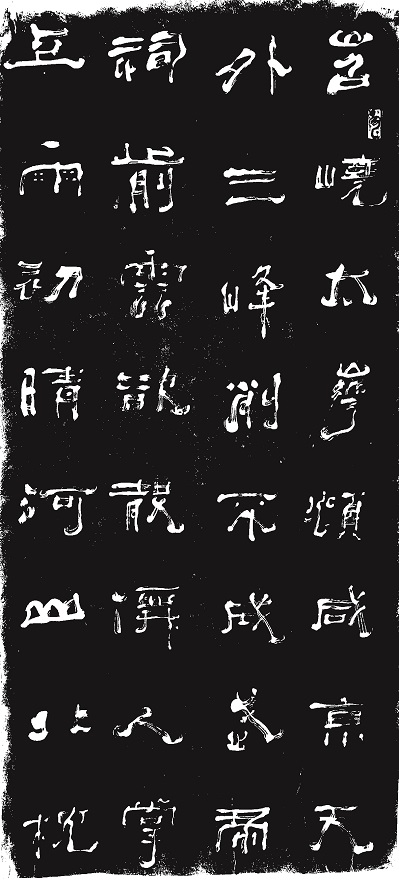 岧嶢太華頫咸京天
外三峰削不成武帝
祠前雲欲散僊人掌
上雨初晴河山北枕